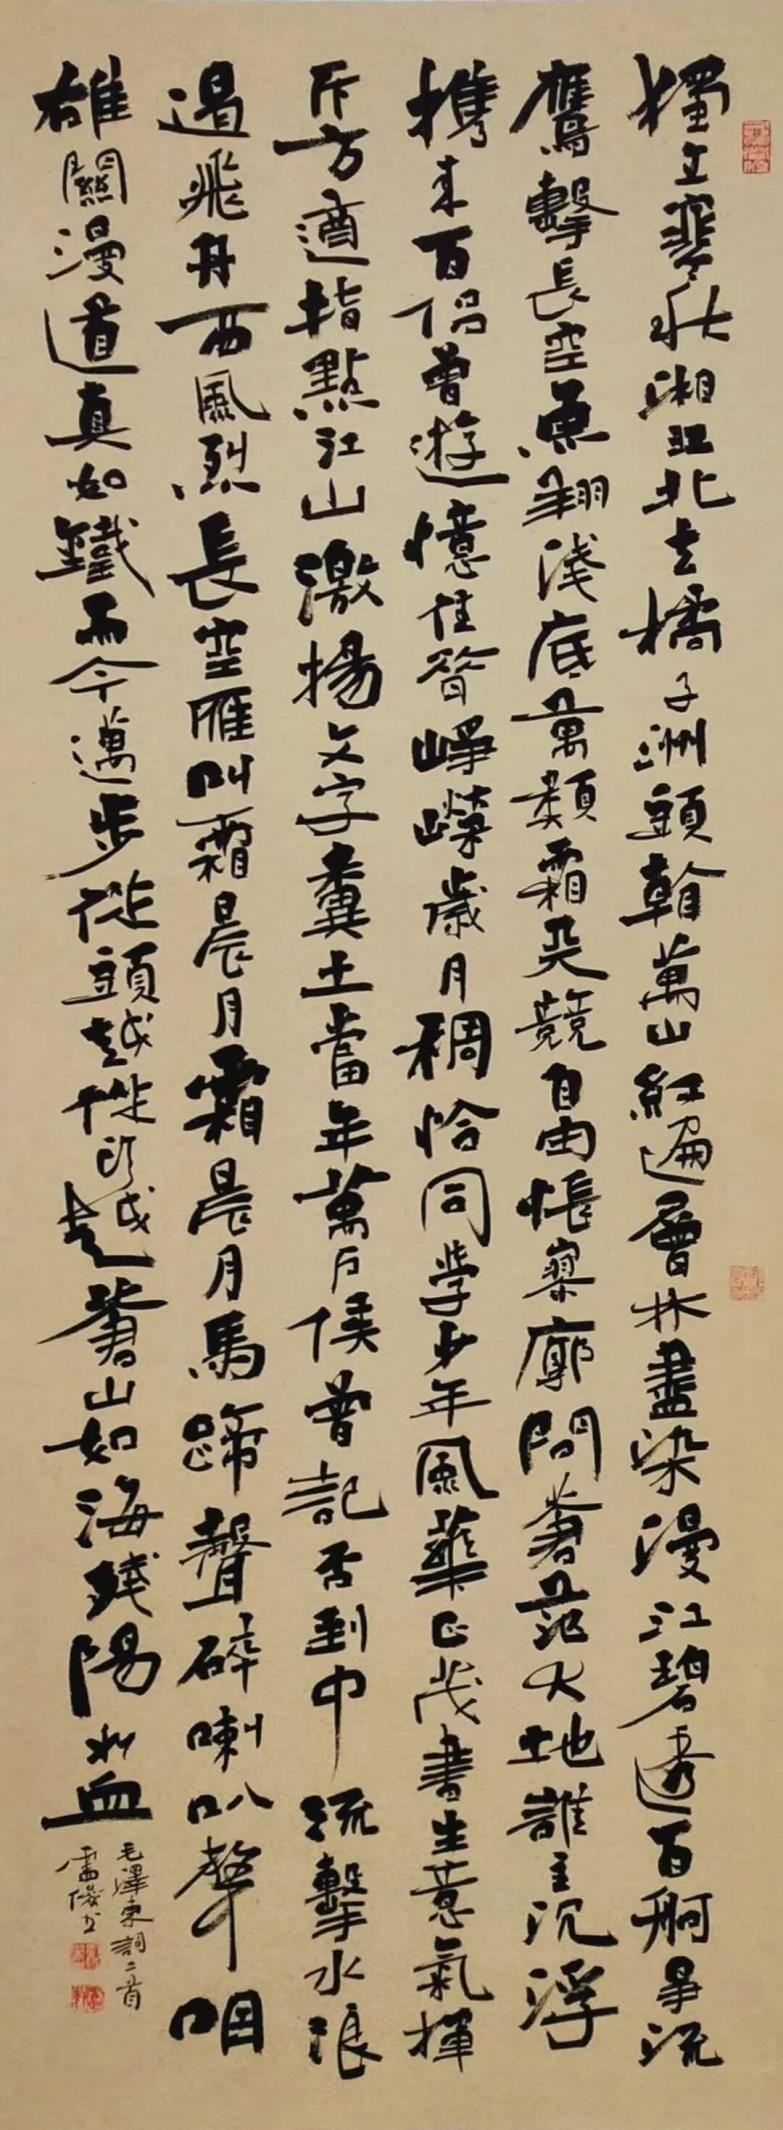 獨立寒秋湘江北去橘子洲頭看萬山紅遍層林盡染漫江碧透百舸爭流
鷹擊長空魚翔淺底萬類霜天競自由悵寥廓問蒼茫大地誰主沉浮
携來百侶曾遊憶往昔崢嶸歲月稠恰同學少年風華正茂書生意氣揮
斥方遒指點江山激揚文字糞土當年萬戶侯曾記否到中流擊水浪
遏飛舟西風烈長空雁叫霜晨月霜晨月馬蹄聲碎喇叭聲咽
雄關漫道真如鐵而今邁步從頭越從頭越蒼山如海殘陽如血
毛澤東詞二首